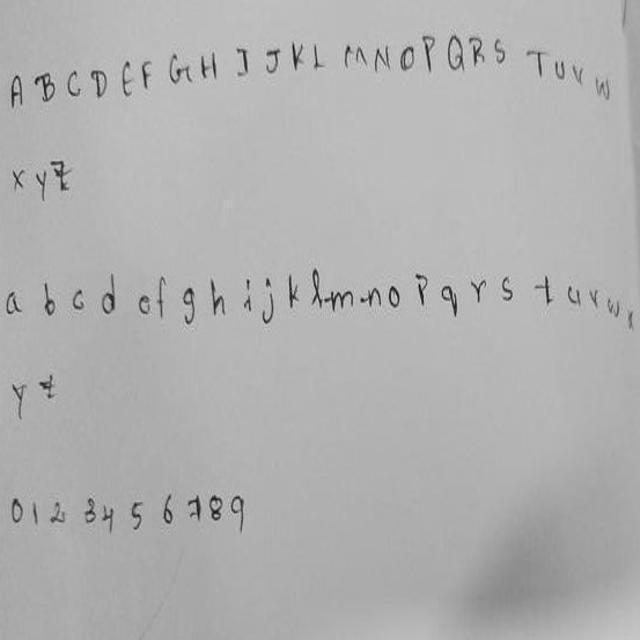 A B C D E F G H I J K L M N O P Q R S T U V W
X Y Z
a b c d e f g h i j k l m n o p q r s t u v w x
y z
0 1 2 3 4 5 6 7 8 9